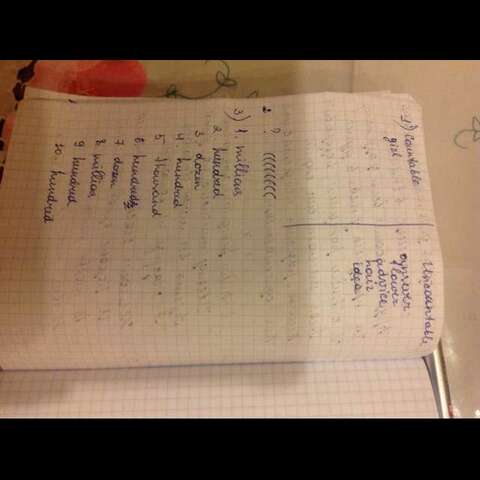 1) Countable
girl
Uncountable
answer
flower
advice
hour
idea
2 ? (((((((((
3) 1. millions
2 hundred
3. dozen
4. hundred
5 thousand
6. hundreds
7 dozen
8. million
9 hundred
10. hundred